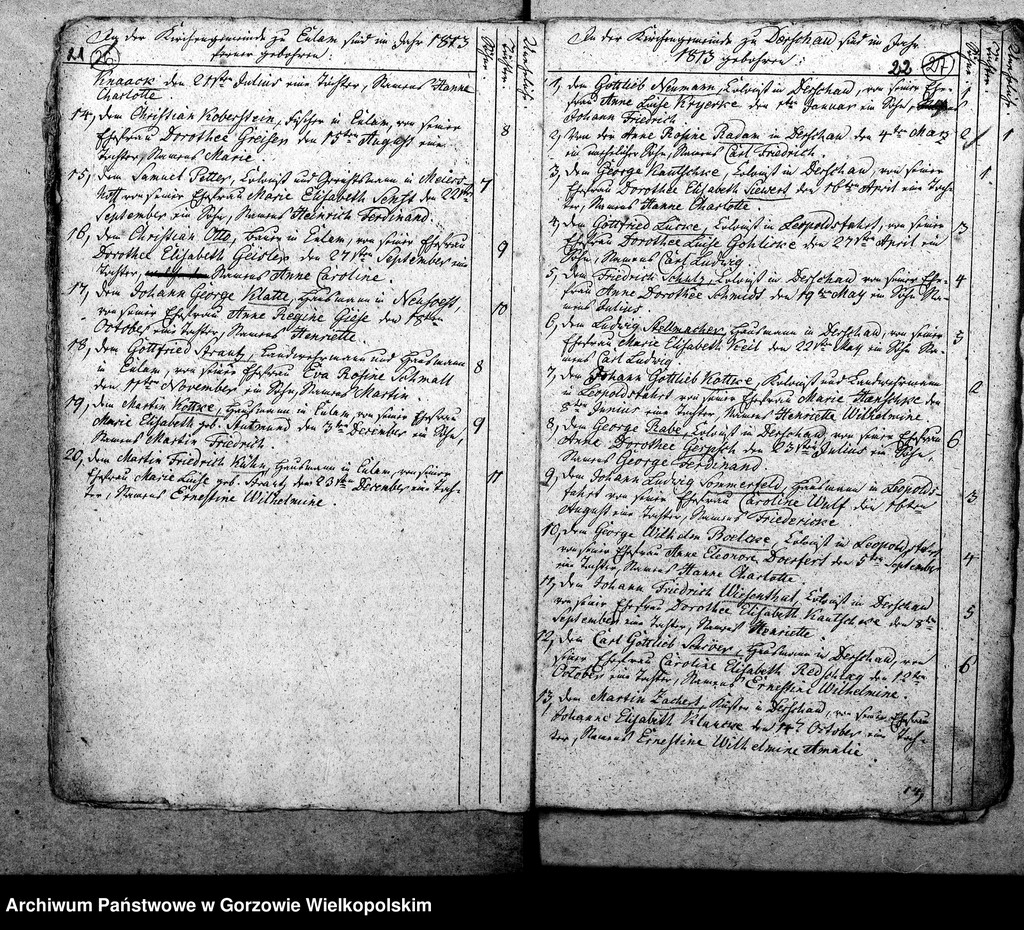 In der Kirchengemeinde zu Eulam sind im Jahr 1813
21 26 ferner gebohren:
Söhne. Töchter. Uneheliche
Knaack den 21sten Julius eine Tochter, Namens Hanne
Charlotte
14, dem Christian Koberstein, Fischer in Eulam, von seiner
Ehefrau Dorothee Greiser den 15ten August eine 8
Tochter, Namens Marie.
15, dem Samuel Petter, Colonist und Gerichtsmann in Meiers-
hoff von seiner Ehefrau Marie Elisabeth Senft den 22sten 7
September ein Sohn, Namens Heinrich Ferdinand.
16, dem Christian Otto, Bauer in Eulam, von seiner Ehefrau
Dorothee Elisabeth Geisler den 27sten September eine 9
Tochter, Namens Anne Caroline.
17, dem Johann George Klatte, Hausmann in Neusoest,
von seiner Ehefrau Anne Regine Giese den 18ten 10
October eine Tochter, Namens Henriette.
18, dem Gottfried Strantz, Landwehrmann und Hausmann
in Eulam, von seiner Ehefrau Eva Rosine Schmall 8
den 11ten November ein Sohn, Namens Martin.
19, dem Martin Kottke, Hausmann in Eulam, von seiner Ehefrau
Marie Elisabeth geb. den 3ten December ein Sohn, 9
Namens Martin Friedrich
20, dem Martin Friedrich Kühn, Hausmann in Eulam, von seiner
Ehefrau Marie Luise geb. Strantz, den 23sten December eine Toch- 11
ter, Namens Ernestine Wilhelmine.
In der Kirchengemeinde zu Derschau sind im Jahr
1813 gebohren: 22 27
Söhne. Töchter. Uneheliche
1, dem Gottlieb Neumann, Colonist in Derschau, von seiner Ehe- 1
frau Anne Luise den 1ten Januar ein Sohn, Namens
Johann Friedrich
2, Von der Anne Rosine Radam in Derschau den 4ten März 2 1
ein unehelicher Sohn, Namens Carl Friedrich.
3, dem George Kautschke, Colonist in Derschau, von seiner 1
Ehefrau Dorothee Elisabeth Siewert den 16ten April eine Toch-
ter, Namens Hanne Charlotte.
4, dem Gottfried Lücke, Colonist in Leopoldsfahrt, von seiner 3
Ehefrau Dorothee Luise Gohlicke den 27sten April ein
Sohn, Namens Carl Ludwig
5, dem Friedrich Schulz, Colonist in Derschau von seiner Ehe- 4
frau Anne Dorothee Schmidt den 19ten May ein Sohn Na-
mens Julius.
6, dem Ludwig Stellmacher, Hausmann in Derschau, von seiner 5
Ehefrau Marie Elisabeth Veit den 22sten May ein Sohn Na-
mens Carl Ludwig
7, dem Johann Gottlieb Kottke, Kolonist und Landwehrmann 2
in Leopoldsfahrt von seiner Ehefrau Marie Hanschke den
8ten Junius eine Tochter, Namens Henriette Wilhelmine
8, dem George Rabe, Colonist in Derschau, von seiner Ehefrau 6
Anne Dorothee Gerpsch den 23sten Julius ein Sohn,
Namens George Ferdinand.
9, dem Johann Ludwig Sommerfeld, Hausmann in Leopolds- 3
fahrt von seiner Ehefrau Caroline Wulf den 16ten
August eine Tochter, Namens Friedericke
10, dem George Wilhelm Boelcke, Colonist in Leopoldsfahrt 4
von seiner Ehefrau Anne Eleonore Doerfert den 5ten September
eine Tochter, Namens Hanne Charlotte.
11, dem Johann Friedrich Wiesenthal, Colonist in Derschau
von seiner Ehefrau Dorothee Elisabeth Kautschke den 8ten 5
September eine Tochter, Namens Henriette.
12, dem Carl Gottlieb Schröer, Hausmann in Derschau, von
seiner Ehefrau Caroline Elisabeth Redschlag den 12ten 6
October eine Tochter, Namens Ernestine Wilhelmine.
13, dem Martin Zachert, Küster in Derschau, von seiner Ehefrau
Johanne Elisabeth den October eine Toch-
ter, Namens Ernestine Wilhelmine Amalie.
14,
Archiwum Państwowe w Gorzowie Wielkopolskim